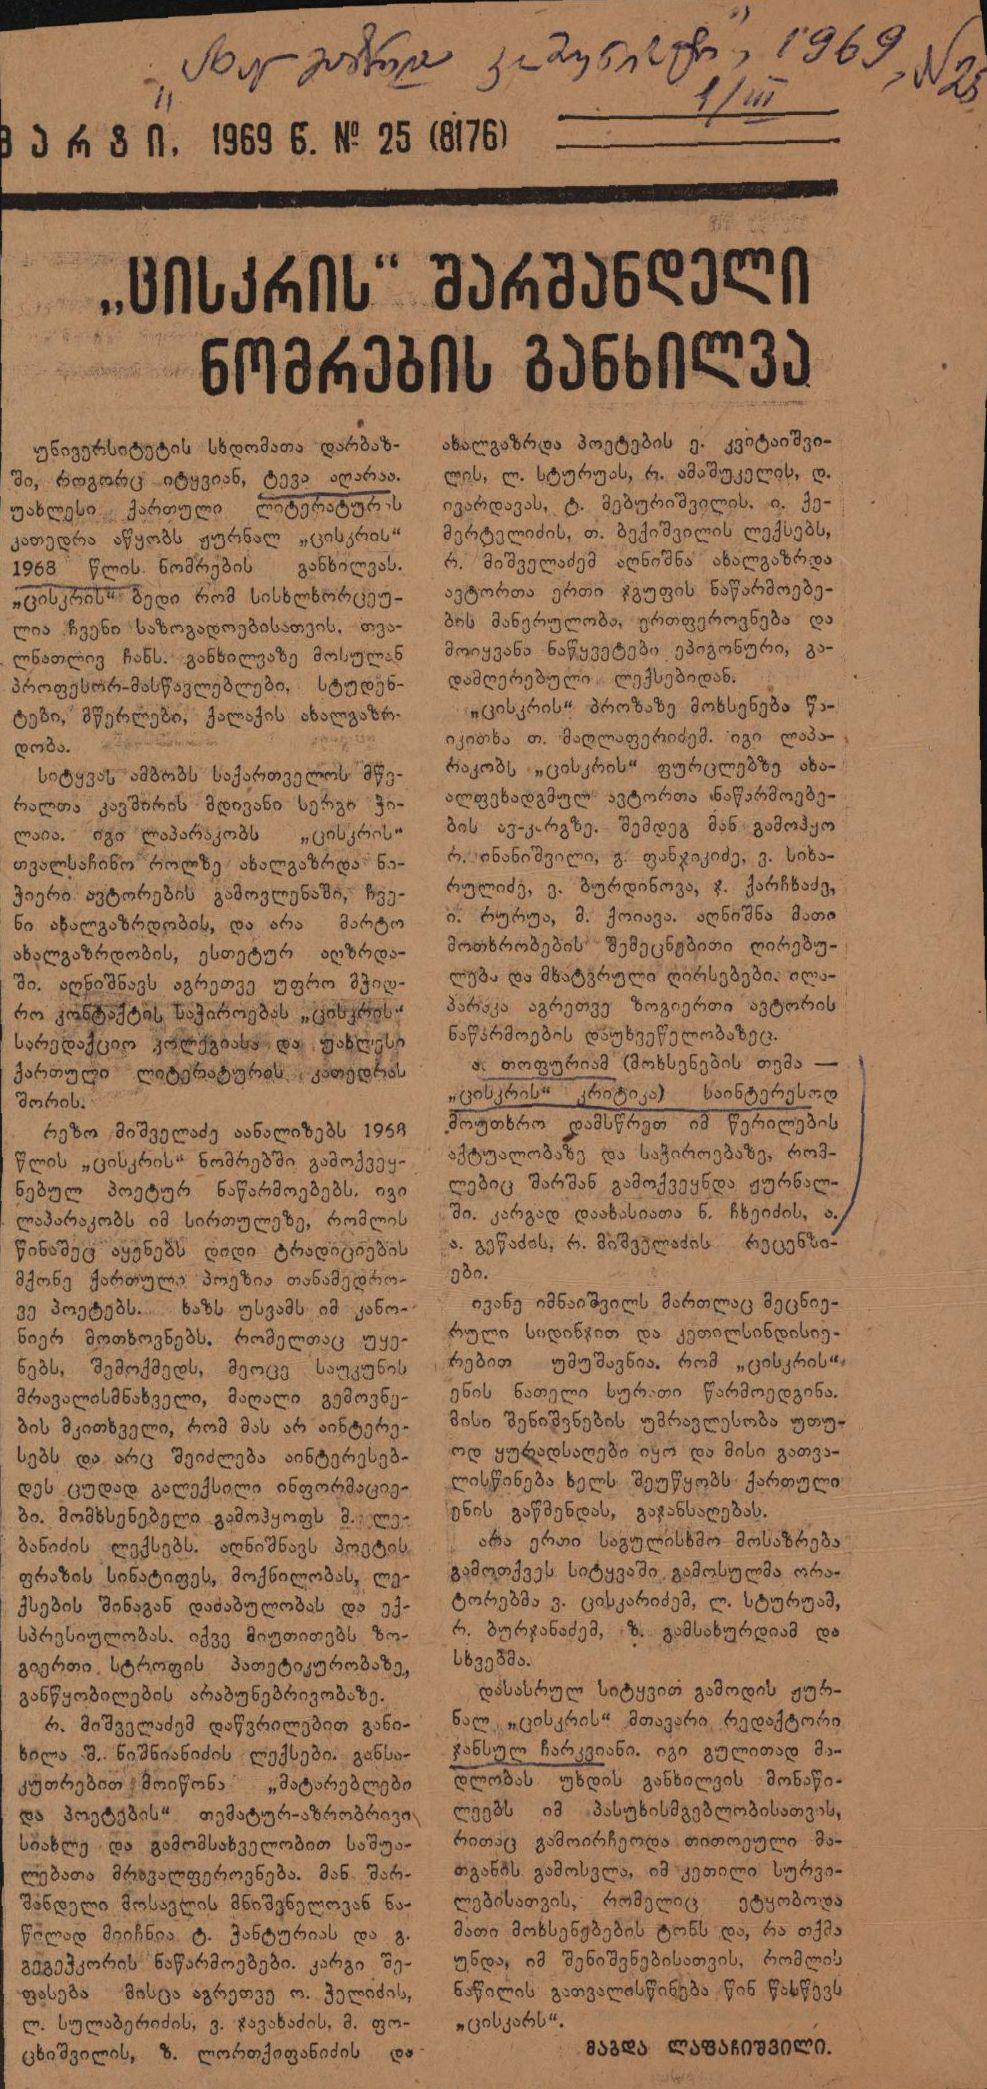 „ახალგაზრდა კომუნისტი", 1969, №25
1/III
მარტი, 1969 წ. № 25 (8176)
„ცისკრის“ შარშანდელი
ნომრების განხილვა
უნივერსიტეტის სხდომათა დარბაზ-
ში, როგორც იტყვიან, ტევა აღარაა.
უახლესი ქართული ლიტერატურის
კათედრა აწყობს ჟურნალ „ცისკრის“
1968 წლის ნომრების განხილვას.
„ცისკრის“ ბედი რომ სისხლხორცეუ-
ლია ჩვენი საზოგადოებისათვის, თვა-
ლნათლივ ჩანს. განხილვაზე მოსულან
პროფესორ-მასწავლებლები, სტუდენ-
ტები, მწერლები, ქალაქის ახალგაზრ-
დობა.
სიტყვას ამბობს საქართველოს მწე-
რალთა კავშირის მდივანი სერგი ჭი-
ლაია. იგი ლაპარაკობს „ცისკრის“
თვალსაჩინო როლზე ახალგაზრდა ნი-
ჭიერი ავტორების გამოვლენაში, ჩვე-
ნი ახალგაზრდობის, და არა მარტო
ახალგაზრდობის, ესთეტურ აღზრდა-
ში. აღნიშნავს აგრეთვე უფრო მჭიდ-
რო კონტაქტის საჭიროებას „ცისკრის“
სარედაქციო კოლეგიასა და უახლესი
ქართული ლიტერატურის კათედრას
შორის.
რეზო მიშველაძე აანალიზებს 1968
წლის „ცისკრის“ ნომრებში გამოქვეყ-
ნებულ პოეტურ ნაწარმოებებს. იგი
ლაპარაკობს იმ სირთულეზე, რომლის
წინაშეც აყენებს დიდი ტრადიციების
მქონე ქართული პოეზია თანამედრო-
ვე პოეტებს. ხაზს უსვამს იმ კანო-
ნიერ მოთხოვნებს, რომელთაც უყე-
ნებს, შემოქმედს, მეოცე საუკუნის
მრავალისმნახველი, მაღალი გემოვნე-
ბის მკითხველი, რომ მას არ აინტერე-
სებს და არც შეიძლება აინტერესებ-
დეს ცუდად გალექსილი ინფორმაციე-
ბი. მომხსენებელი გამოჰყოფს მ. ლე-
ბანიძის ლექსებს. აღნიშნავს პოეტის
ფრაზის სინატიფეს, მოქნილობას, ლე-
ქსების შინაგან დაძაბულობას და ექ-
სპრესიულობას. იქვე მიუთითებს ზო-
გიერთი სტროფის პათეტიკურობაზე,
განწყობილების არაბუნებრივობაზე.
რ. მიშველაძემ დაწვრილებით განი-
ხილა შ. ნიშნიანიძის ლექსები. განსა-
კუთრებით მოიწონა „მატარებლები
და პოეტების“ თემატურ-აზრობრივი
სიახლე და გამომსახველობით საშუა-
ლებათა მრავალფეროვნება. მან შარ-
შანდელი მოსავლის მნიშვნელოვან ნა-
წილად მიიჩნია ტ. ჭანტურიას და გ.
გეგეჭკორის ნაწარმოებები. კარგი შე-
ფასება მისცა აგრეთვე ო. ჭელიძის,
ლ. სულაბერიძის, ვ. ჯავახაძის, მ. ფო-
ცხიშვილის, ზ. ლორთქიფანიძის და
ახალგაზრდა პოეტების ე. კვიტაიშვი-
ლის, ლ. სტურუას, რ. ამაშუკელის, დ.
ივარდავას, ტ. მებურიშვილის, ი. ქე-
მერტელიძის, თ. ბექიშვილის ლექსებს,
რ. მიშველაძემ აღნიშნა ახალგაზრდა
ავტორთა ერთი ჯგუფის ნაწარმოებე-
ბის მანერულობა, ერთფეროვნება და
მოიყვანა ნაწყვეტები ეპიგონური, გა-
დამღერებული ლექსებიდან.
„ცისკრის“ პროზაზე მოხსენება წა-
იკითხა თ. მაღლაფერიძემ. იგი ლაპა-
რაკობს „ცისკრის“ ფურცლებზე ახა-
ალფეხადგმულ ავტორთა ნაწარმოებე-
ბის ავ-კარგზე. შემდეგ მან გამოჰყო
რ. ინანიშვილი, გ. ფანჯიკიძე, ვ. სიხა-
რულიძე, ე. ბურდინოვა, ჯ. ქარჩხაძე,
ი. რურუა, მ. ქოიავა. აღნიშნა მათი
მოთხრობების შემეცნებითი ღირებუ-
ლება და მხატვრული ღირსებები. ილა-
პარაკა აგრეთვე ზოგიერთი ავტორის
ნაწარმოების დაუხვეწელობაზეც.
ა. თოფურიამ (მოხსენების თემა —
„ცისკრის“ კრიტიკა) საინტერესოდ
მოუთხრო დამსწრეთ იმ წერილების
აქტუალობაზე და საჭიროებაზე, რომ-
ლებიც შარშან გამოქვეყნდა ჟურნალ-
ში. კარგად დაახასიათა ნ. ჩხეიძის, ა.
ა. გეწაძის, რ. მიშველაძის რეცენზი-
ები.
ივანე იმნაიშვილს მართლაც მეცნიე-
რული სიდინჯით და კეთილსინდისიე-
რებით უმუშავნია, რომ „ცისკრის“
ენის ნათელი სურათი წარმოედგინა.
მისი შენიშვნების უმრავლესობა უთუ-
ოდ ყურადსაღები იყო და მისი გათვა-
ლისწინება ხელს შეუწყობს ქართული
ენის გაწმენდას, გაჯანსაღებას.
არა ერთი საგულისხმო მოსაზრება
გამოთქვეს სიტყვაში გამოსულმა ორა-
ტორებმა ვ. ცისკარიძემ, ლ. სტურუამ,
რ. ბურჯანაძემ, ზ. გამსახურდიამ და
სხვებმა.
დასასრულ სიტყვით გამოდის ჟურ-
ნალ „ცისკრის“ მთავარი რედაქტორი
ჯანსულ ჩარკვიანი. იგი გულითად მა-
დლობას უხდის განხილვის მონაწი-
ლეებს იმ პასუხისმგებლობისათვის,
რითაც გამოირჩეოდა თითოეული მა-
თგანის გამოსვლა, იმ კეთილი სურვი-
ლებისათვის, რომელიც ეტყობოდა
მათი მოხსენებების ტონს და, რა თქმა
უნდა, იმ შენიშვნებისათვის, რომლის
ნაწილის გათვალისწინება წინ წასწევს
„ცისკარს“.
მაგდა ლაფაჩიშვილი.